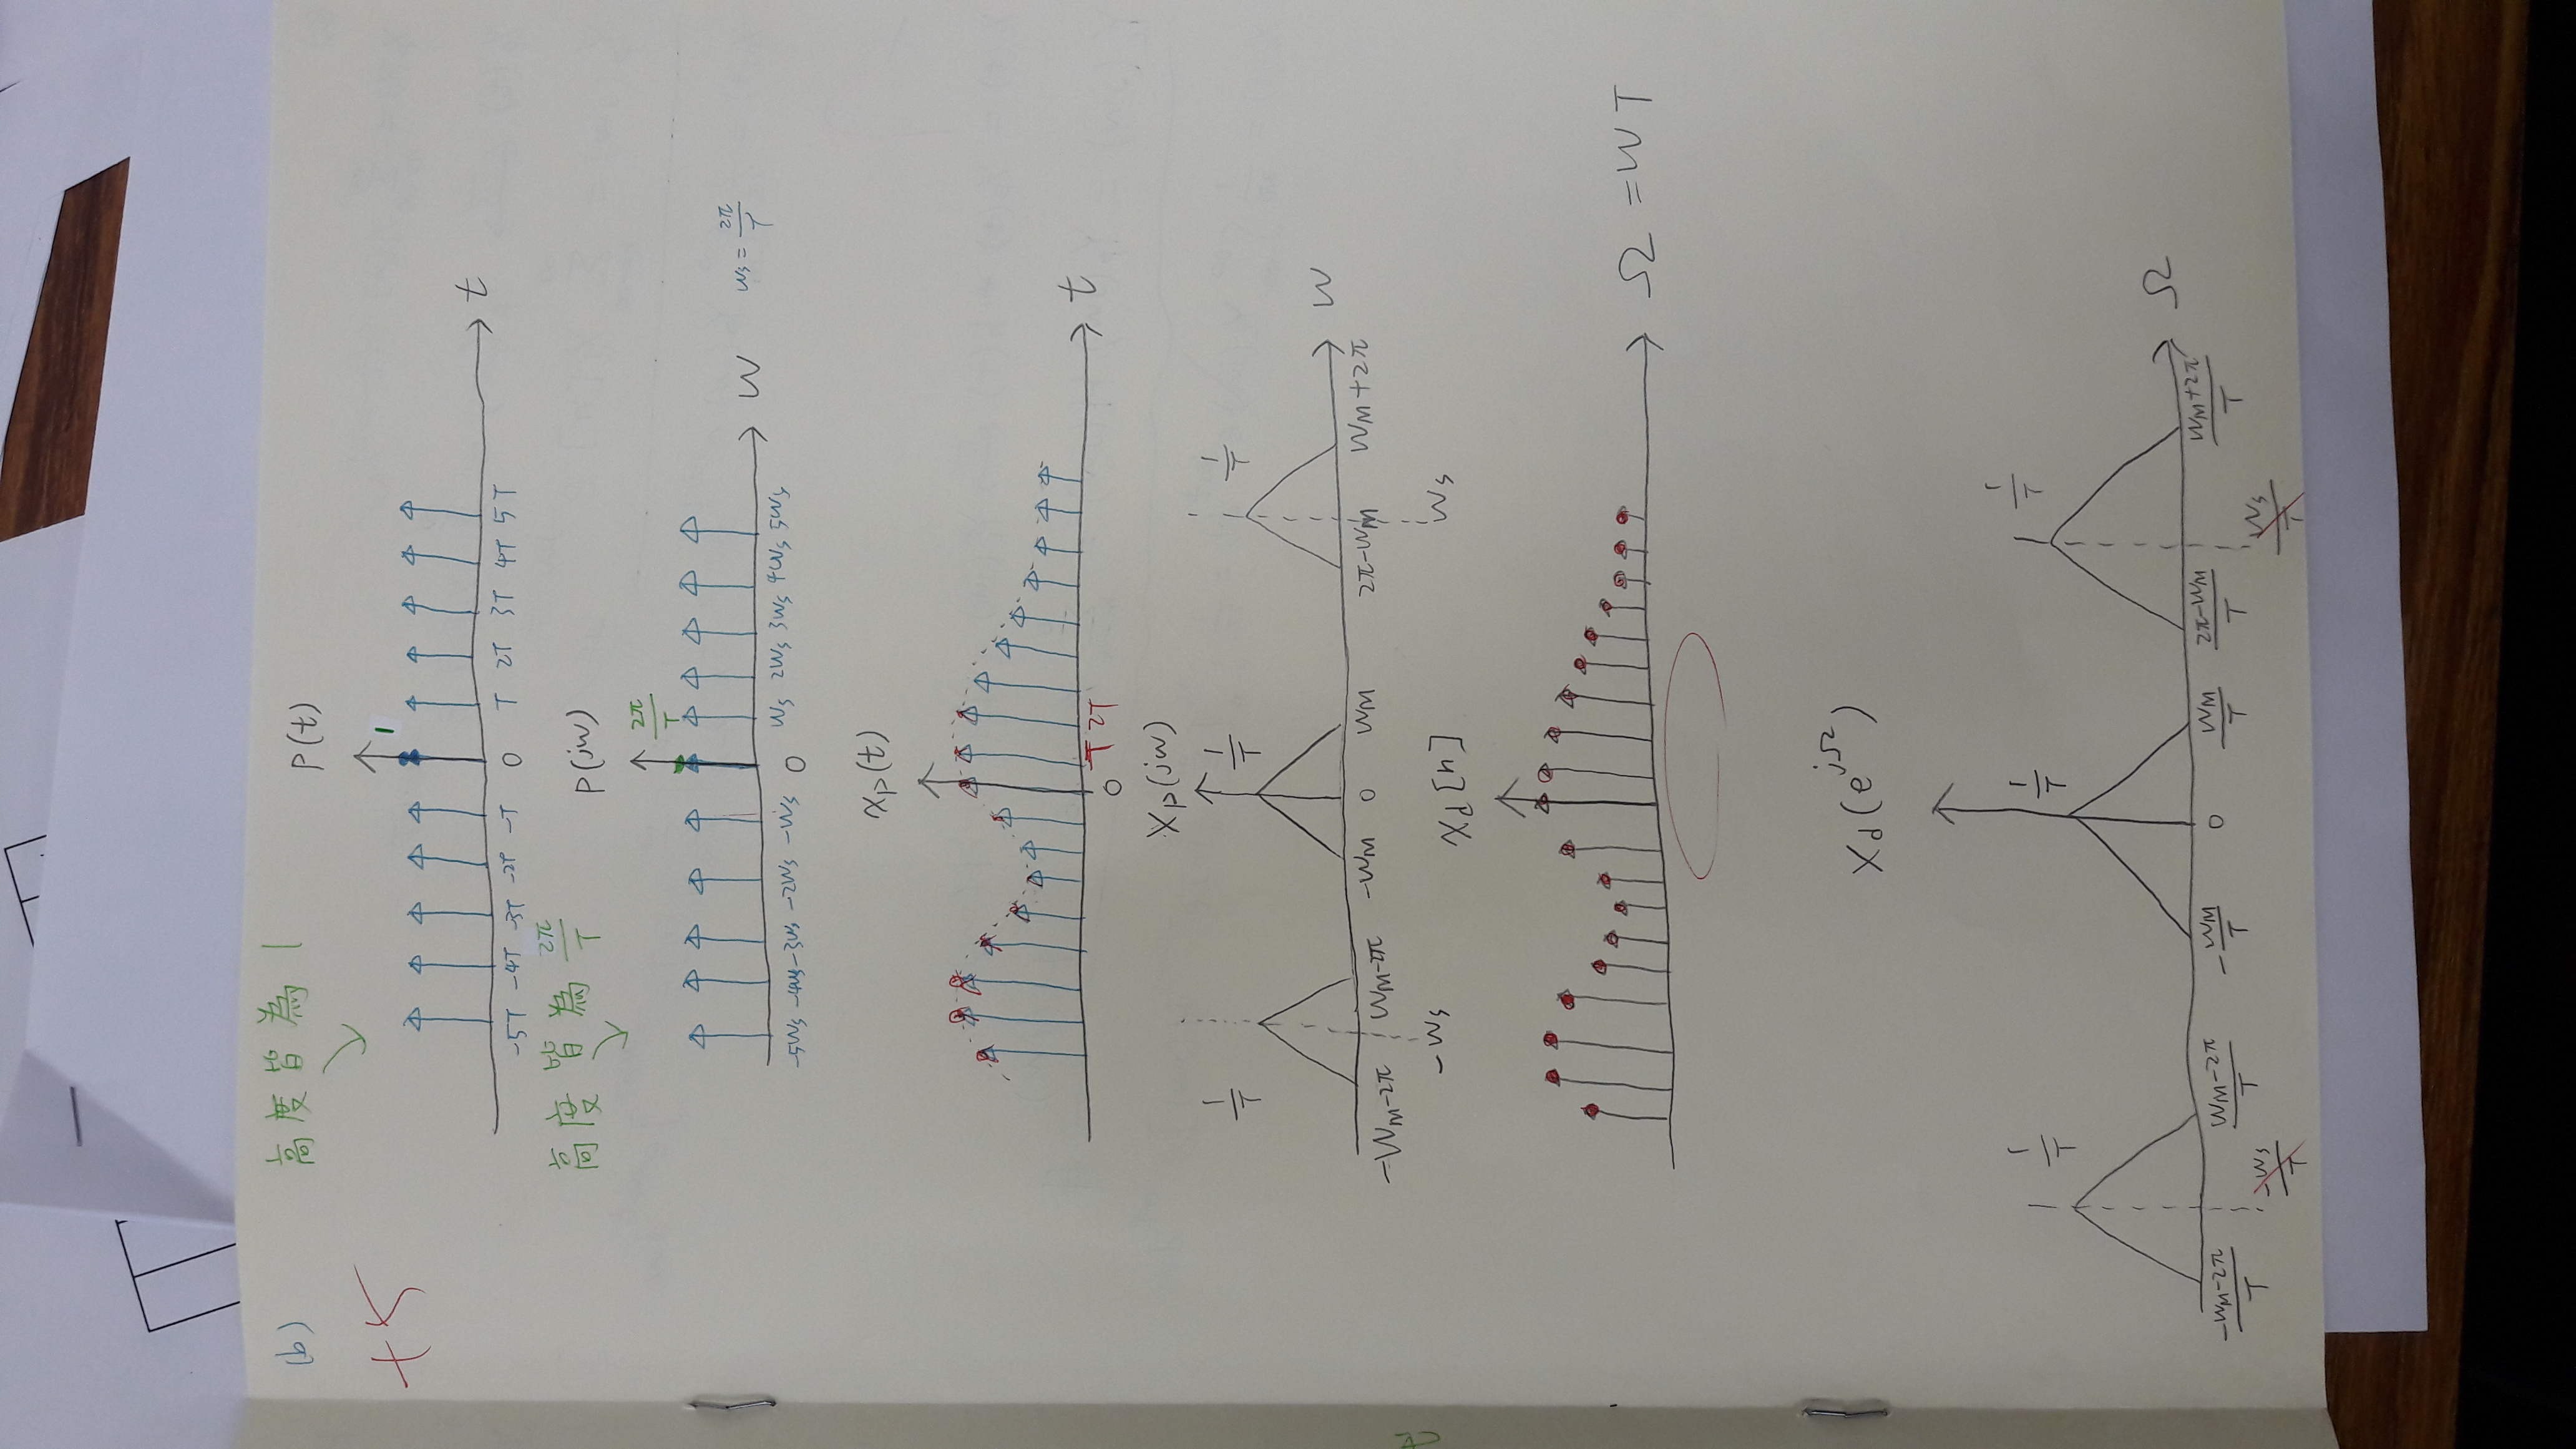 (b)
高度皆為 1
+5
P(t)
1
t
-5T -4T -3T -2T -T 0 T 2T 3T 4T 5T
高度皆為 2π/T
P(jw)
2π/T
w
ws = 2π/T
-5ws -4ws -3ws -2ws -ws 0 ws 2ws 3ws 4ws 5ws
xp(t)
t
0 T 2T
Xp(jw)
1/T 1/T 1/T
w
-wM-2π wM-2π -wM 0 wM 2π-wM wM+2π
-ws ws
xd[n]
Ω = wT
Xd(e^jΩ)
1/T 1/T 1/T
Ω
(-wM-2π)/T (wM-2π)/T -wM/T 0 wM/T (2π-wM)/T (wM+2π)/T
-ws/T ws/T